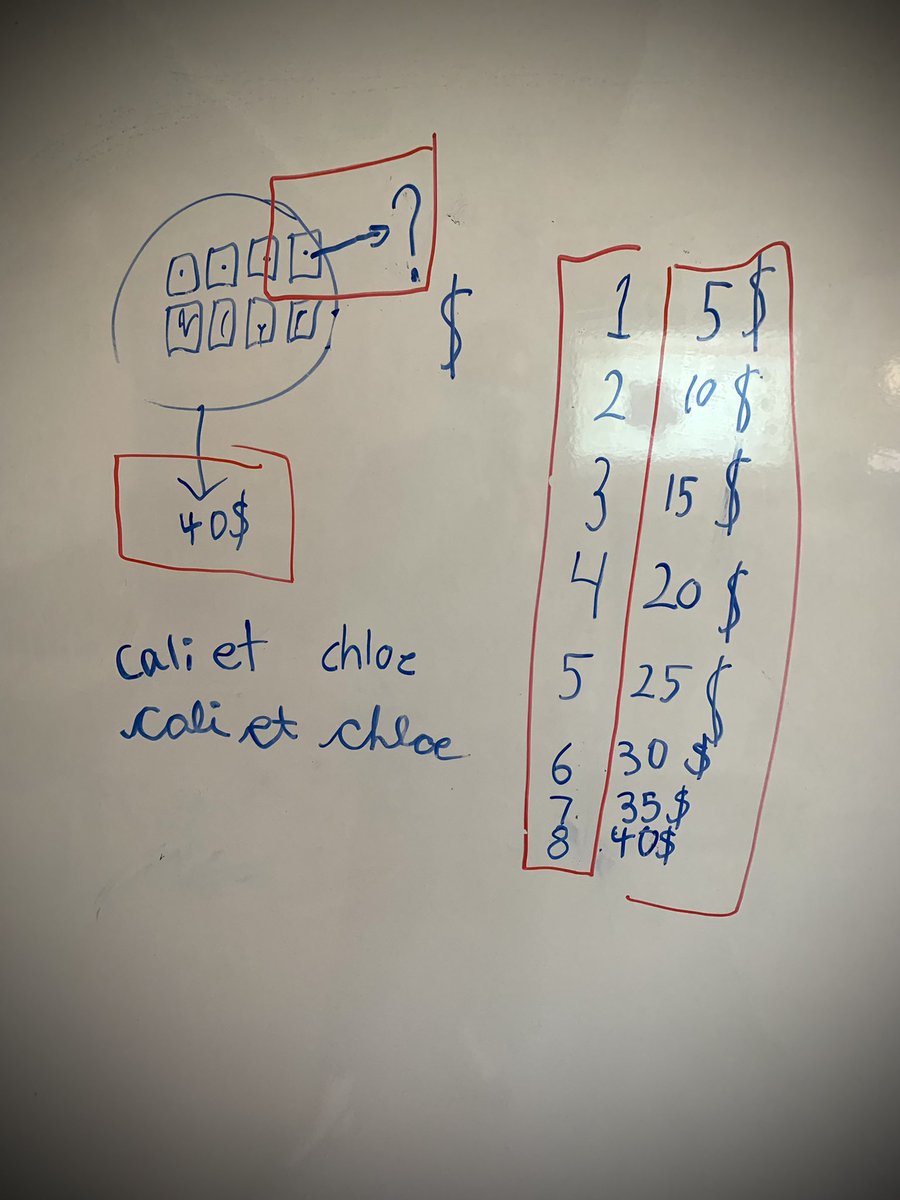 ?
$
40$
cali et chloe
cali et chloe
1 5$
2 10$
3 15$
4 20$
5 25$
6 30$
7 35$
8 40$